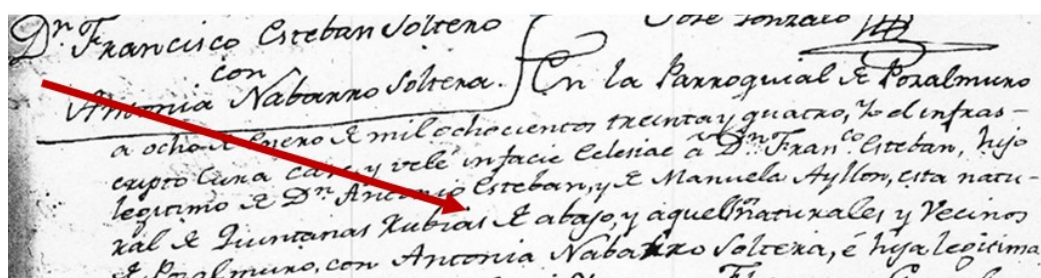 Dn Francisco Esteban Soltero
con
Antonia Nabarro Soltera.
Jose Gonzalo
En la Parroquial de Pozalmuro
a ocho de Enero de mil ochocientos treinta y quatro, Yo el infras-
cripto Cura casé, y velé infacie Eclesiae a Dn Franco Esteban, hijo
legitimo de Dn Antonio Esteban, y de Manuela Ayllon, esta natu-
ral de Quintanas Rubias de abajo, y aquellos naturales y Vecinos
de Pozalmuro, con Antonia Nabarro Soltera, é hija legitima